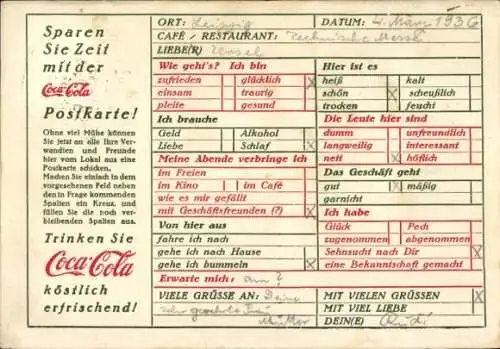 Sparen
Sie Zeit
mit der
Coca-Cola
Postkarte!
Ohne viel Mühe können
Sie jetzt an alle Ihre Ver-
wandten und Freunde
hier vom Lokal aus eine
Postkarte schicken.
Machen Sie einfach in dem
vorgesehenen Feld neben
den in Frage kommenden
Spalten ein Kreuz, und
füllen Sie die noch ver-
bleibenden Spalten aus.
Trinken Sie
Coca-Cola
köstlich
erfrischend!
ORT: Leipzig DATUM: 4. März 1936
CAFÉ / RESTAURANT: Technische Messe
LIEBE(R) Ursel
Wie geht's? Ich bin
zufrieden glücklich X
einsam traurig
pleite gesund
Ich brauche
Geld Alkohol
Liebe Schlaf X
Meine Abende verbringe ich
im Freien
im Kino im Café
wie es mir gefällt
mit Geschäftsfreunden (?) X
Von hier aus
fahre ich nach
gehe ich nach Hause
gehe ich bummeln X
Erwarte mich: am ?
VIELE GRÜSSE AN: Deine
sehr geehrte Frau
Mutter
Hier ist es
heiß kalt
schön X scheußlich
trocken feucht
Die Leute hier sind
dumm unfreundlich
langweilig interessant
nett X höflich
Das Geschäft geht
gut X mäßig
garnicht
Ich habe
Glück Pech
zugenommen abgenommen
Sehnsucht nach Dir X
eine Bekanntschaft gemacht
MIT VIELEN GRÜSSEN X
MIT VIEL LIEBE
DEIN(E) Rudi